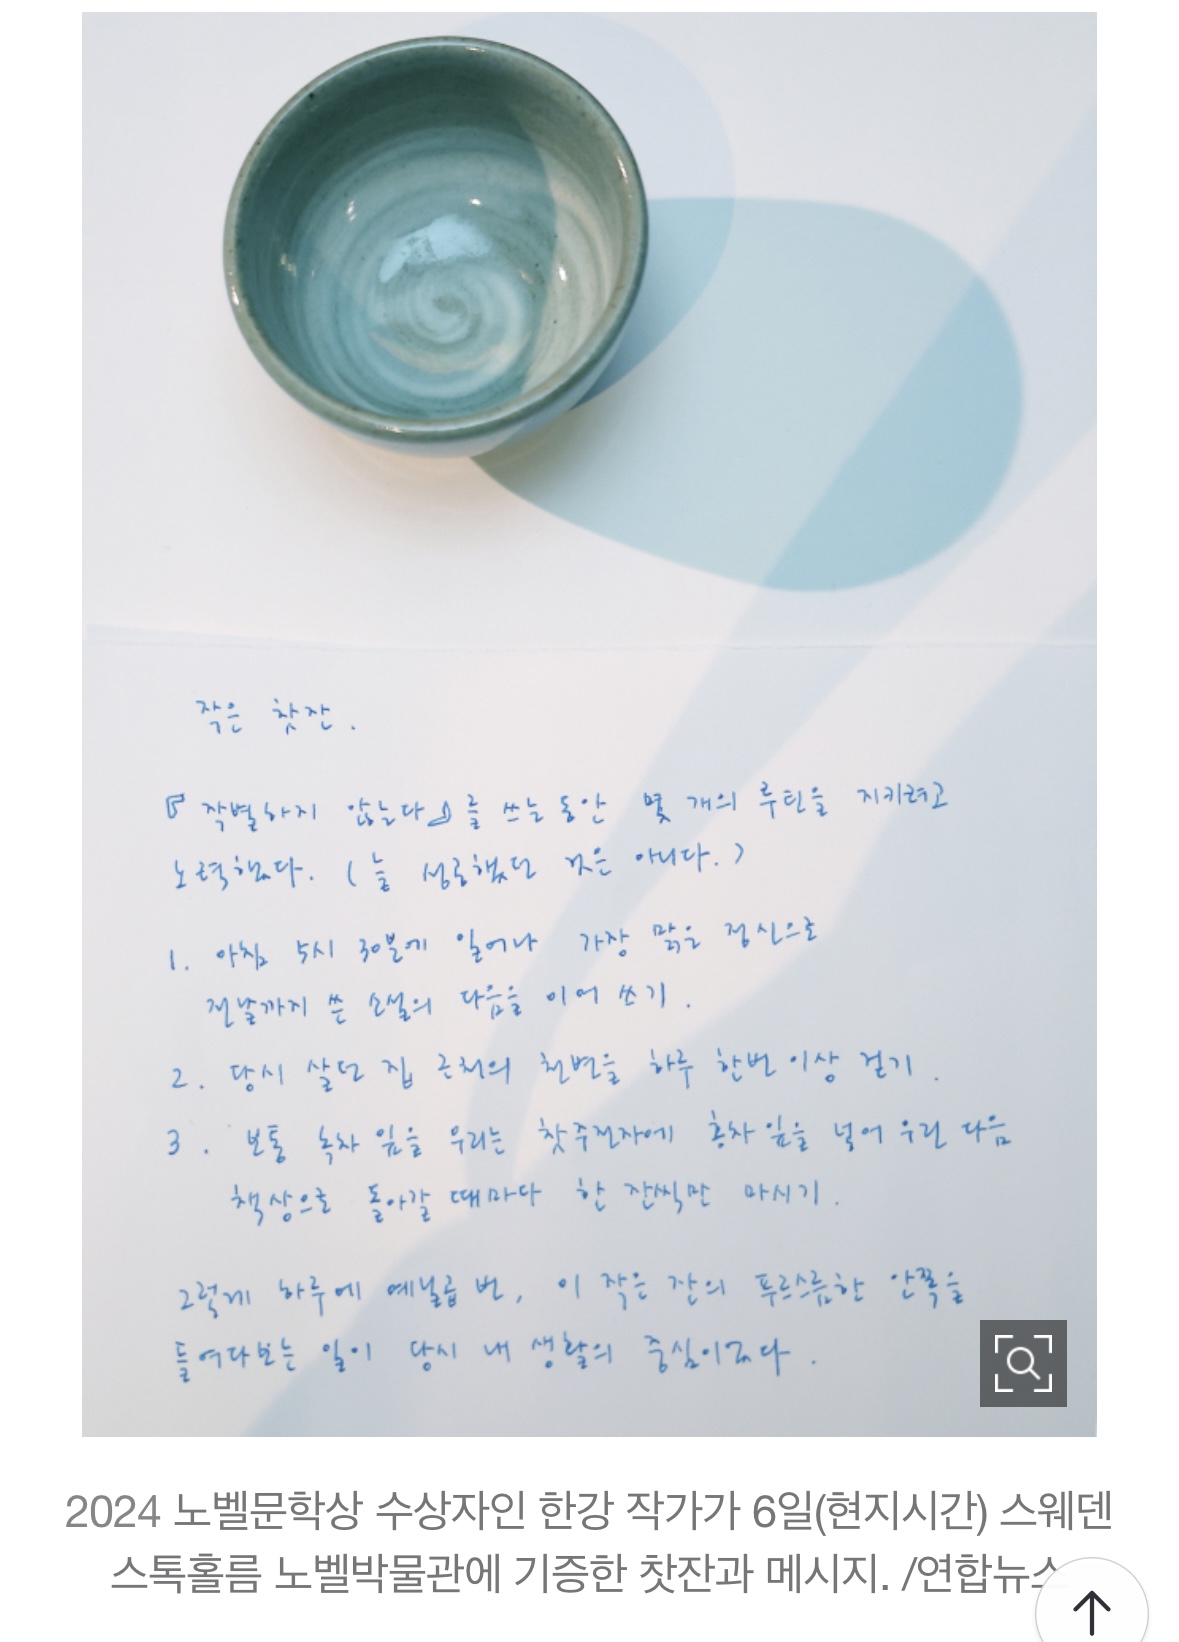 작은 찻잔.
『작별하지 않는다』를 쓰는 동안 몇 개의 루틴을 지키려고
노력했다. (늘 성공했던 것은 아니다.)
1. 아침 5시 30분에 일어나 가장 맑은 정신으로
전날까지 쓴 소설의 다음을 이어 쓰기.
2. 당시 살던 집 근처의 천변을 하루 한번 이상 걷기.
3. 보통 녹차 잎을 우리는 찻주전자에 홍차잎을 넣어 우린 다음
책상으로 돌아갈 때마다 한 잔씩만 마시기.
그렇게 하루에 예닐곱 번, 이 작은 잔의 푸르스름한 안쪽을
들여다보는 일이 당시 내 생활의 중심이었다.
2024 노벨문학상 수상자인 한강 작가가 6일(현지시간) 스웨덴
스톡홀름 노벨박물관에 기증한 찻잔과 메시지. /연합뉴스